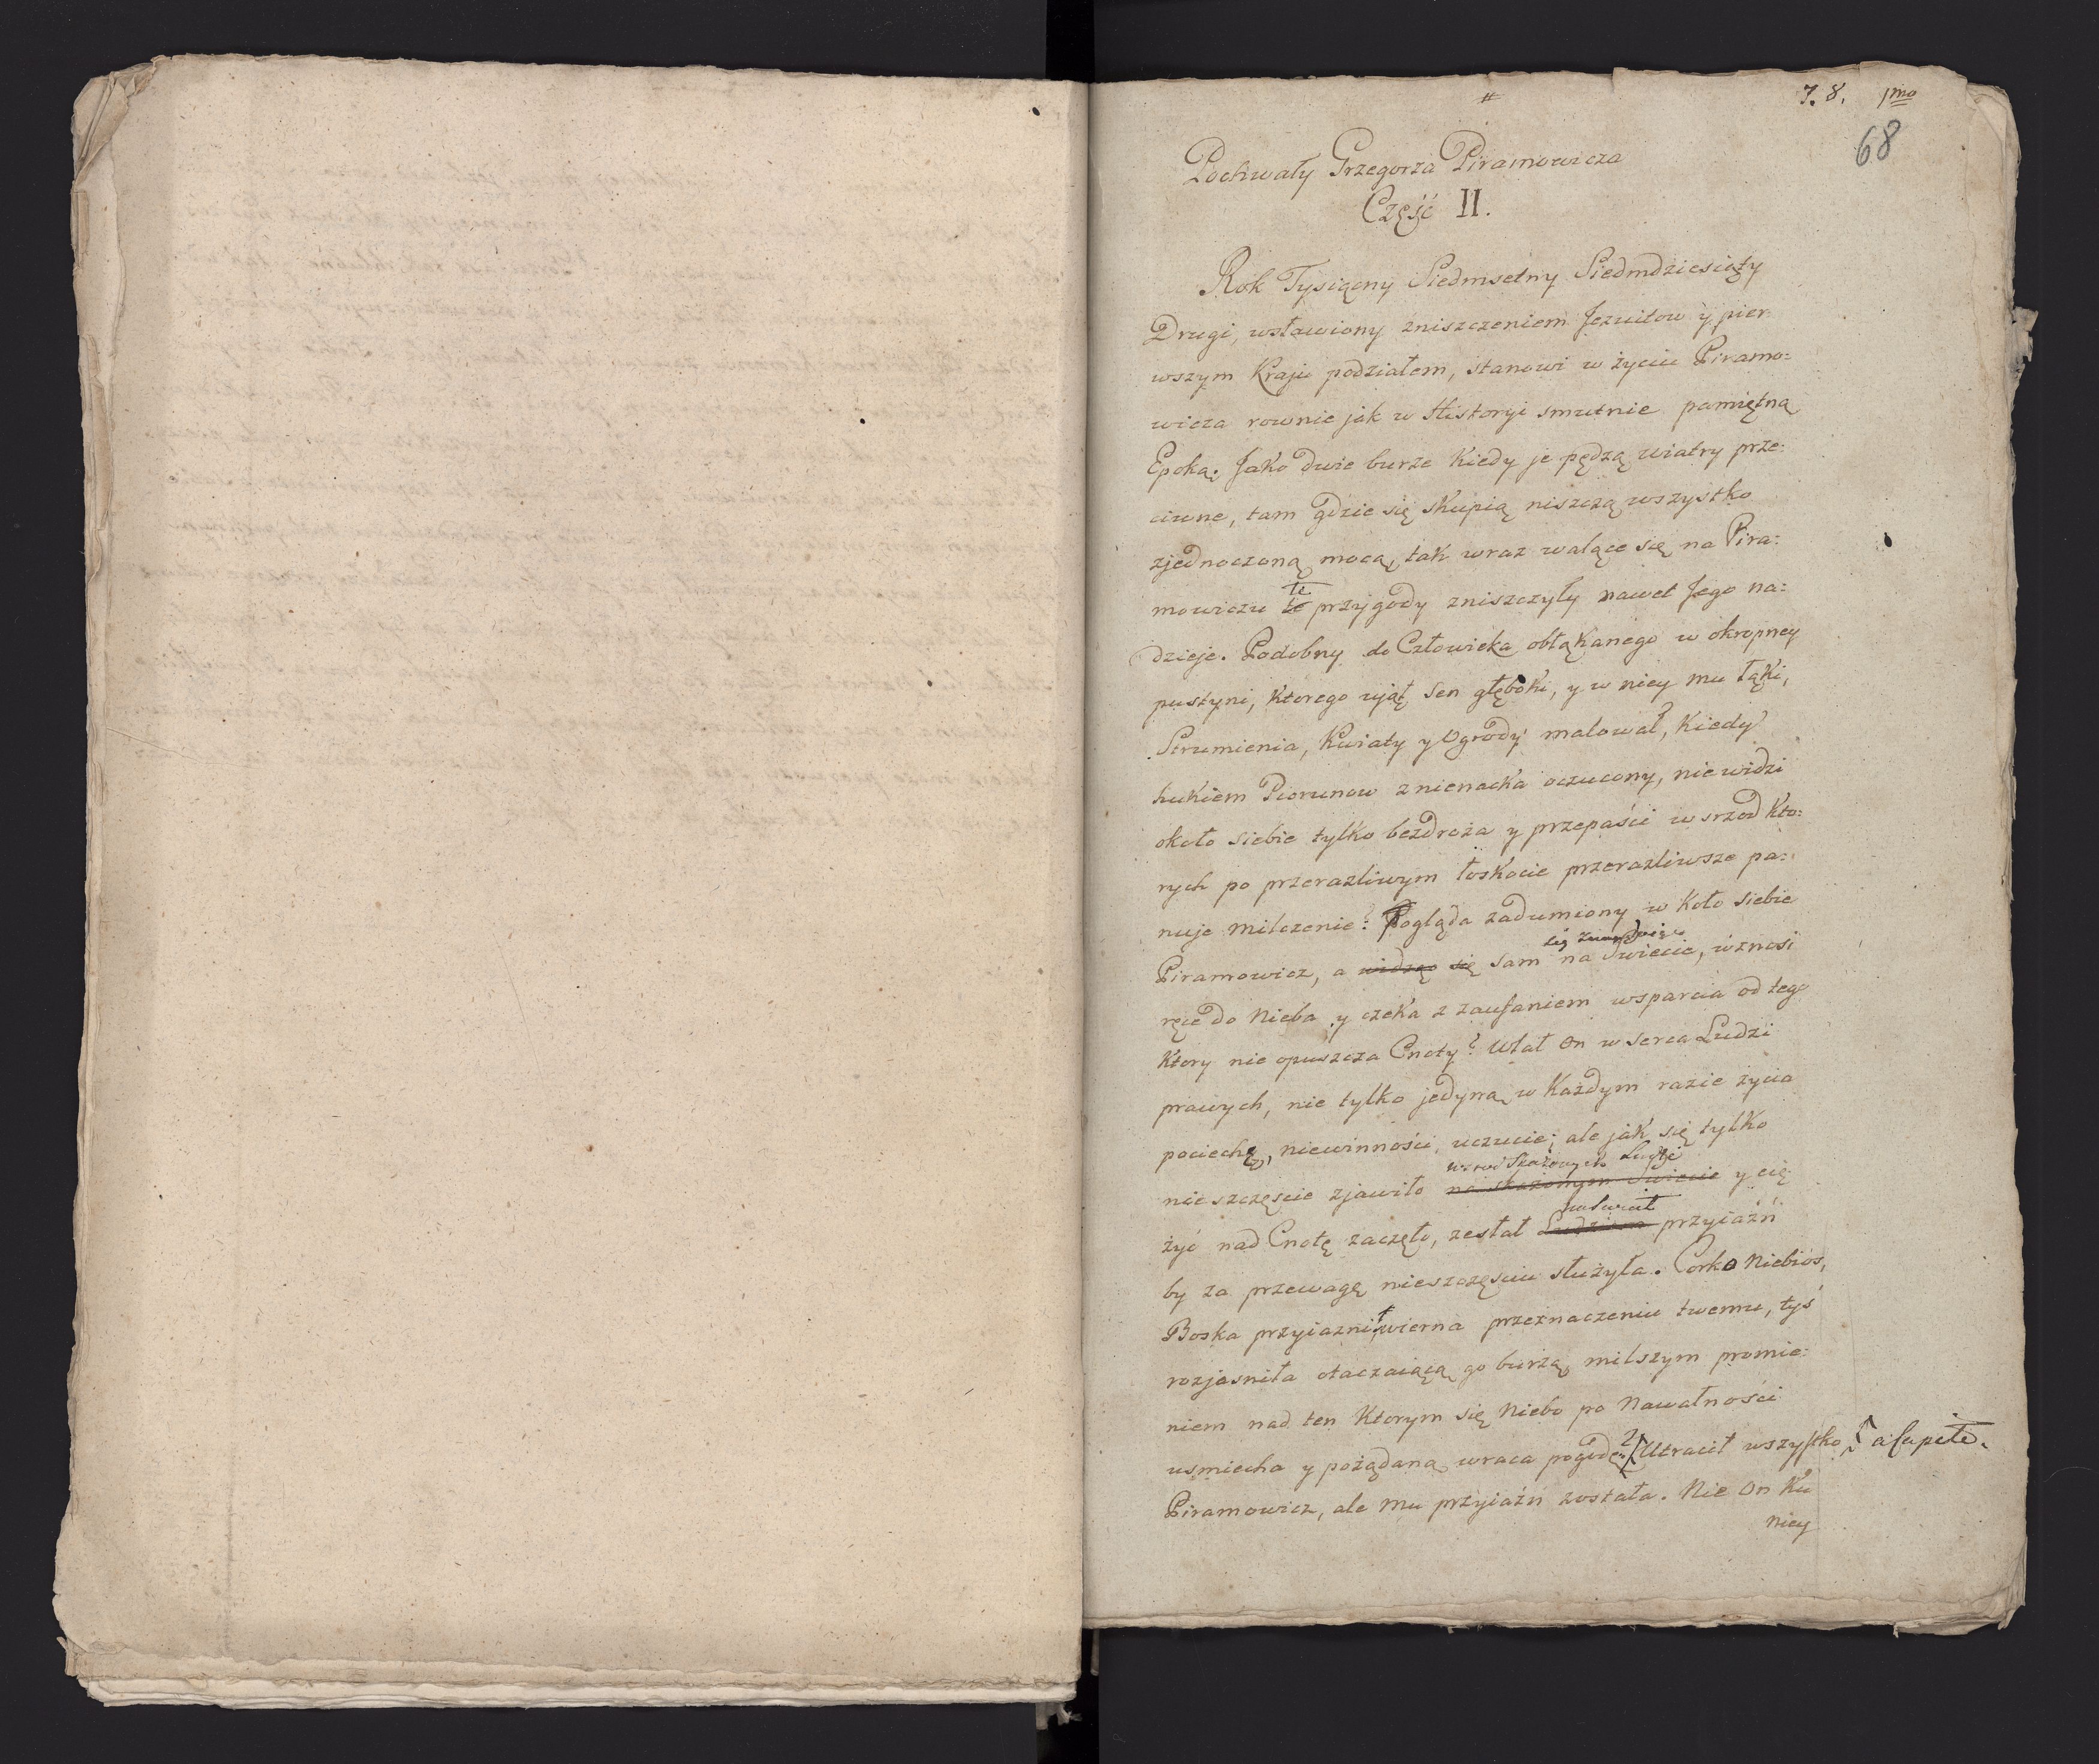 7. 8. 1mo
68
Pochwały Grzegorza Piramowicza
Część II.
Rok Tysiączny Siedmsetny Siedmdziesiąty
Drugi, wsławiony zniszczeniem Jezuitow y pier
wszym Kraju podziałem, stanowi w życiu Piramo:
wicza rownie jak w Historyi smutnie pamiętną
Epoką. Jako dwie burze Kiedy je pędzą wiatry prze:
ciwne, tam gdzie się skupią niszczą wszystko
zjednoczoną mocą, tak wraz waląće się na Pira:
te
mowiczu te przygody zniszczyły nawet Jego na:
dzieje. Podobny do Człowieka obłąkanego w okropney
pustyni, Ktorego ujął Sen głęboki, y w niey mu łąki,
Strumienia, Kwiaty y Ogrody malował, Kiedy
hukiem Piorunow znienacka oczucony, nie widzi
około siebie tylko bezdroża y przepaści wsrzod kto:
rych po przerazliwym łoskocie przerazliwsze pa:
nuje milczenie: Pogląda zadumiony w Koło siebie
się znayduiąc
Piramowicz, a widząc się sam na Swiecie, wznosi
ręce do Nieba y czeka z zaufaniem wsparcia od tego
Ktory nie opuszcza Cnoty? Wlał On w serca Ludzi
prawych, nie tylko jedyną w Każdym razie życia
pociechę, niewinności uczucie; ale jak się tylko
wsrod Skażonych Ludzi
nieszczęscie zjawiło na skażonym Swiecie y cię
na swiat
żyć nad Cnotę zaczęło, zesłał Ludziom przyiaźń
by za przewagę nieszczęsciu służyła. Corko Niebios,
Boska przyiazni wierna przeznaczeniu twemu, tyś
rozjasniła otaczaiącą go burzą milszym promie:
niem nad ten Ktorym się Niebo po Nawałności
usmiecha y pożądaną wraca pogodę. Utracił wszystko a capite.
Piramowicz, ale mu przyiaźń została. Nie On Ku
niey